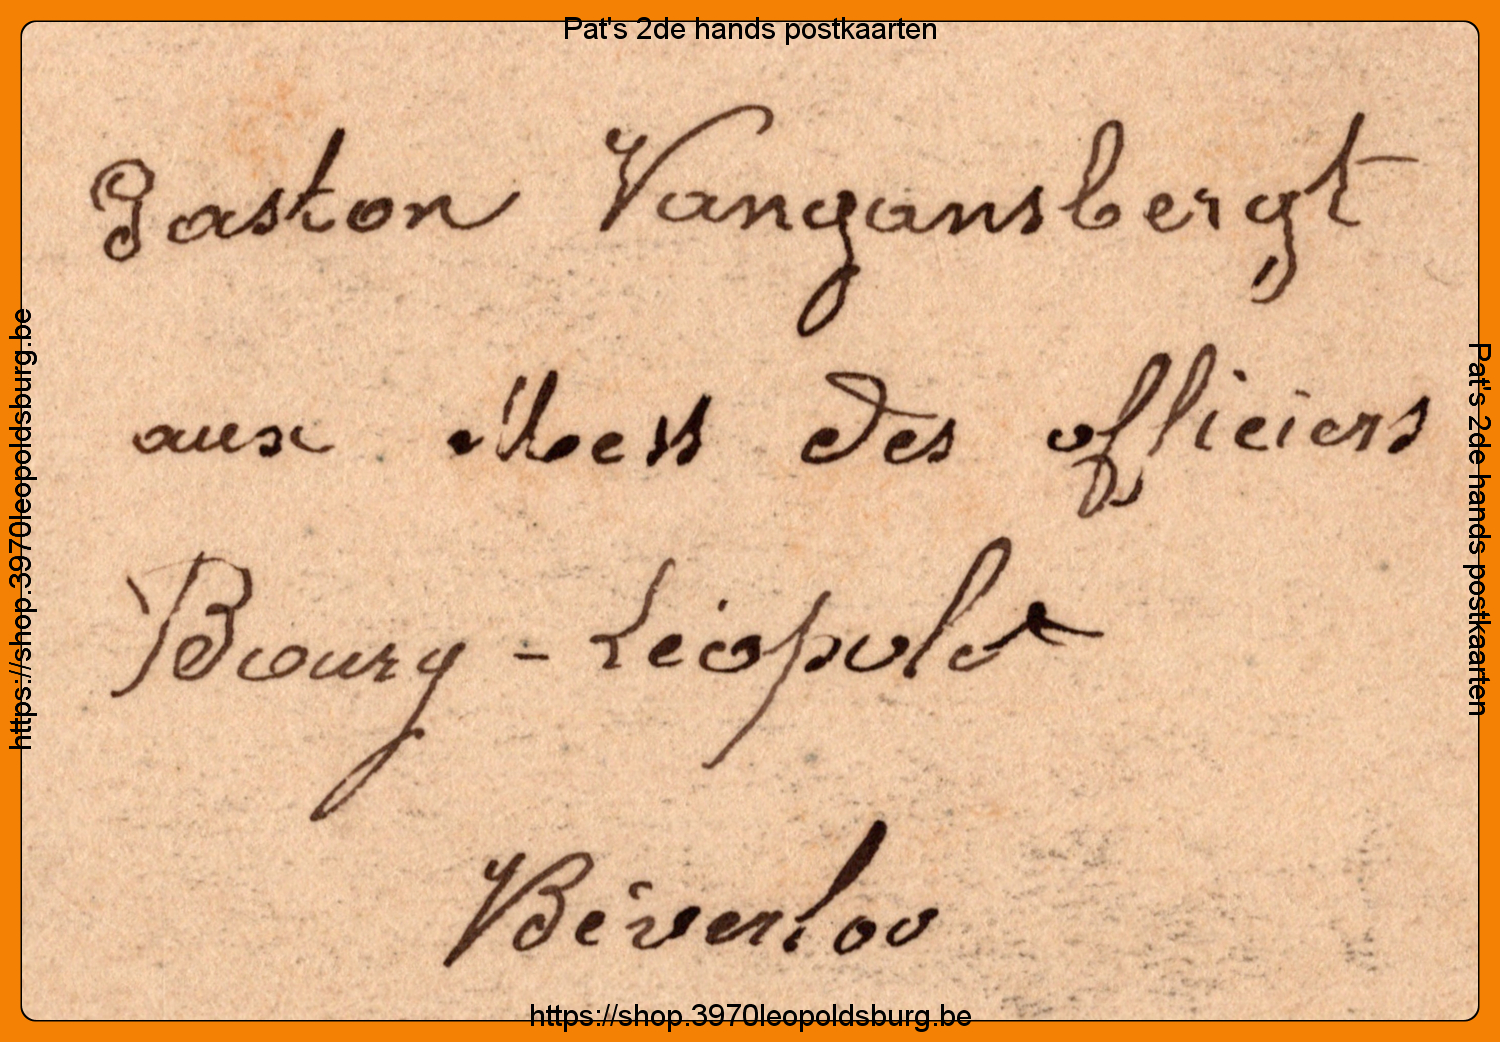 Pat's 2de hands postkaarten
Gaston Vangansbergt
aux Mess des officiers
Bourg - Léopold
Béverloo
https://shop.3970leopoldsburg.be
Pat's 2de hands postkaarten
https://shop.3970leopoldsburg.be